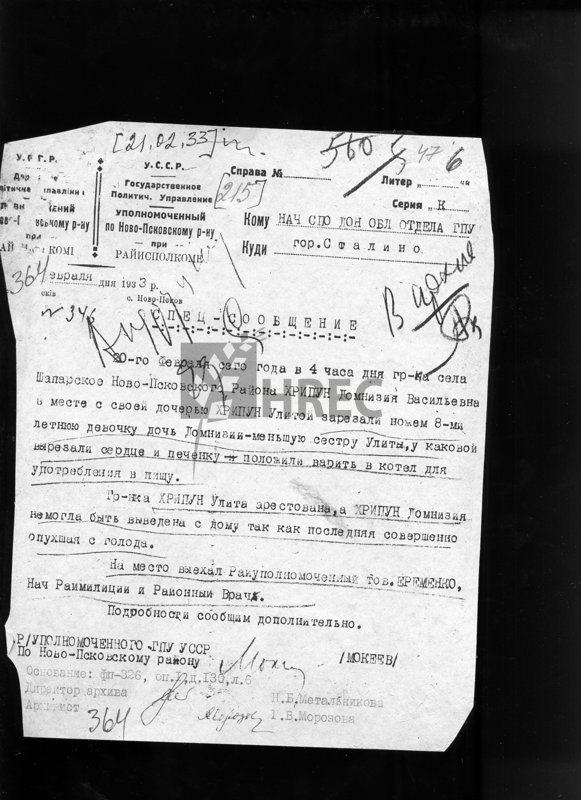 [21.02.33]
560
47 6
У.С.С.Р.
Государственное
Политич. Управление
[215]
УПОЛНОМОЧЕННЫЙ
по Ново-Псковскому р-ну
при
РАЙИСПОЛКОМЕ
Справа №
Литер
Серия „ К
Кому НАЧ СПО ДОН ОБЛ ОТДЕЛА ГПУ
Куди гор.Сталино
364
евраля дня 1933 р.
с. Ново-Псков
№ 346
В архив
СПЕЦ-СООБЩЕНИЕ
HREC
20-го Февраля сего года в 4 часа дня гр-ка села
Шапарское Ново-Псковского Района ХРИПУН Домнизия Васильевна
в месте с своей дочерью ХРИПУН Улитой зарезали ножем 8-ми
летнюю девочку дочь Домнизии-меньшую сестру Улиты,у каковой
вырезали сердце и печенку и положили варить в котел для
употребления в пищу.
Гр-нка ХРИПУН Улита арестована,а ХРИПУН Домнизия
немогла быть выведена с дому так как последняя совершенно
опухшая с голода.
На место выехал Райуполномоченный тов.ЕРЕМЕНКО,
Нач Раимилиции и Районный Врач.
Подробности сообщим дополнительно.
Р/УПОЛНОМОЧЕННОГО ГПУ УССР
По Ново-Псковскому району /МОКЕЕВ/
Основание: фп-326, оп.1,д.130,л.6
Директор архива Н.Б.Метальникова
Архивист Г.В.Морозова
364